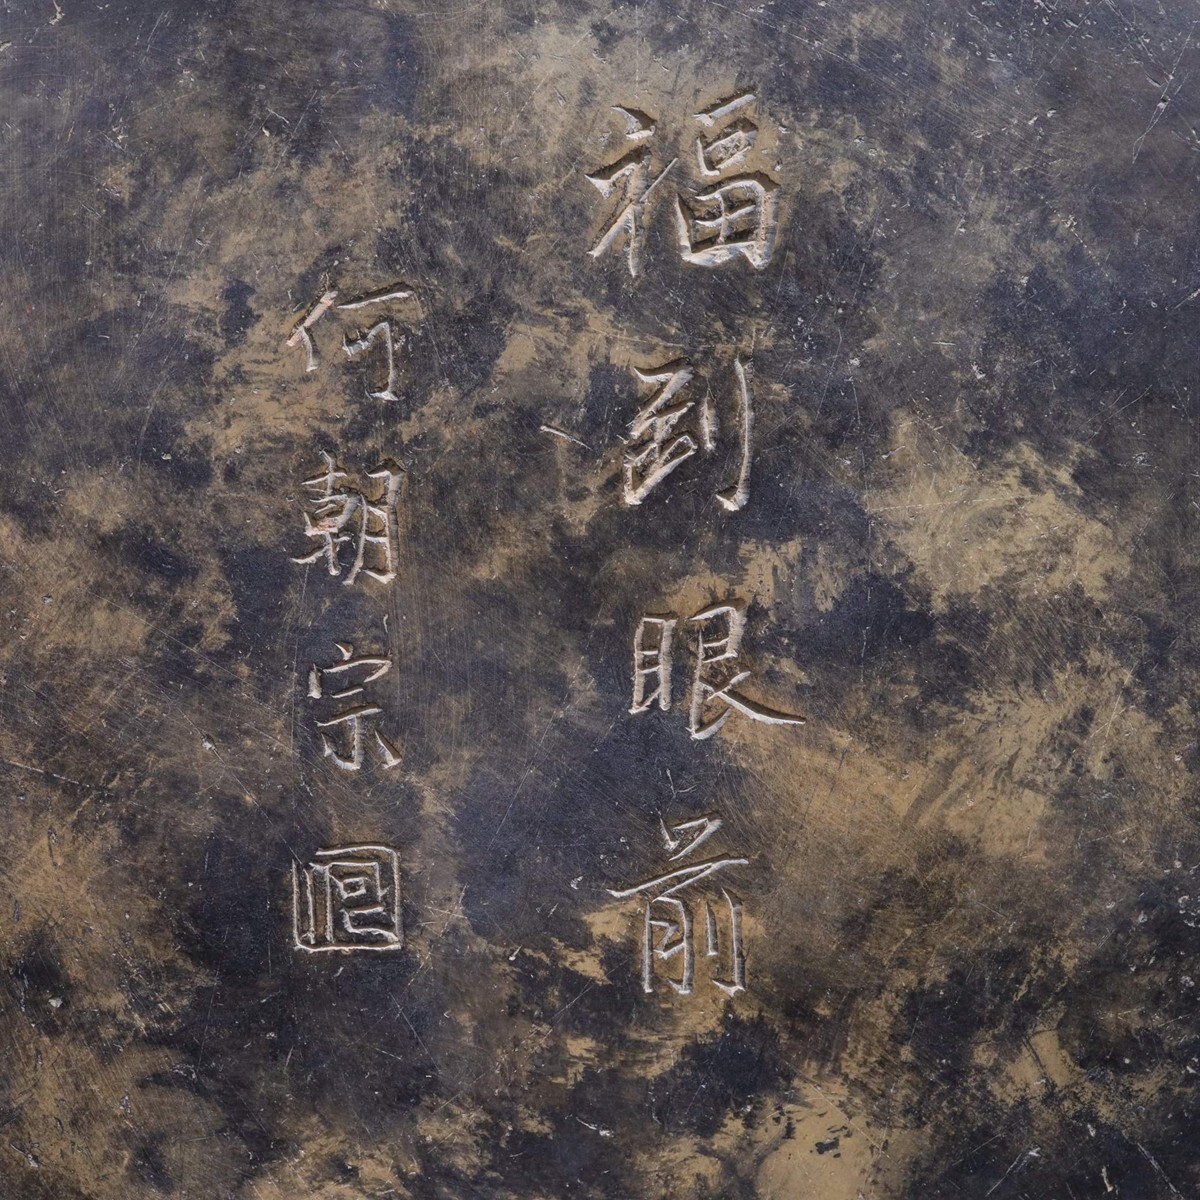 福到眼前
何朝宗